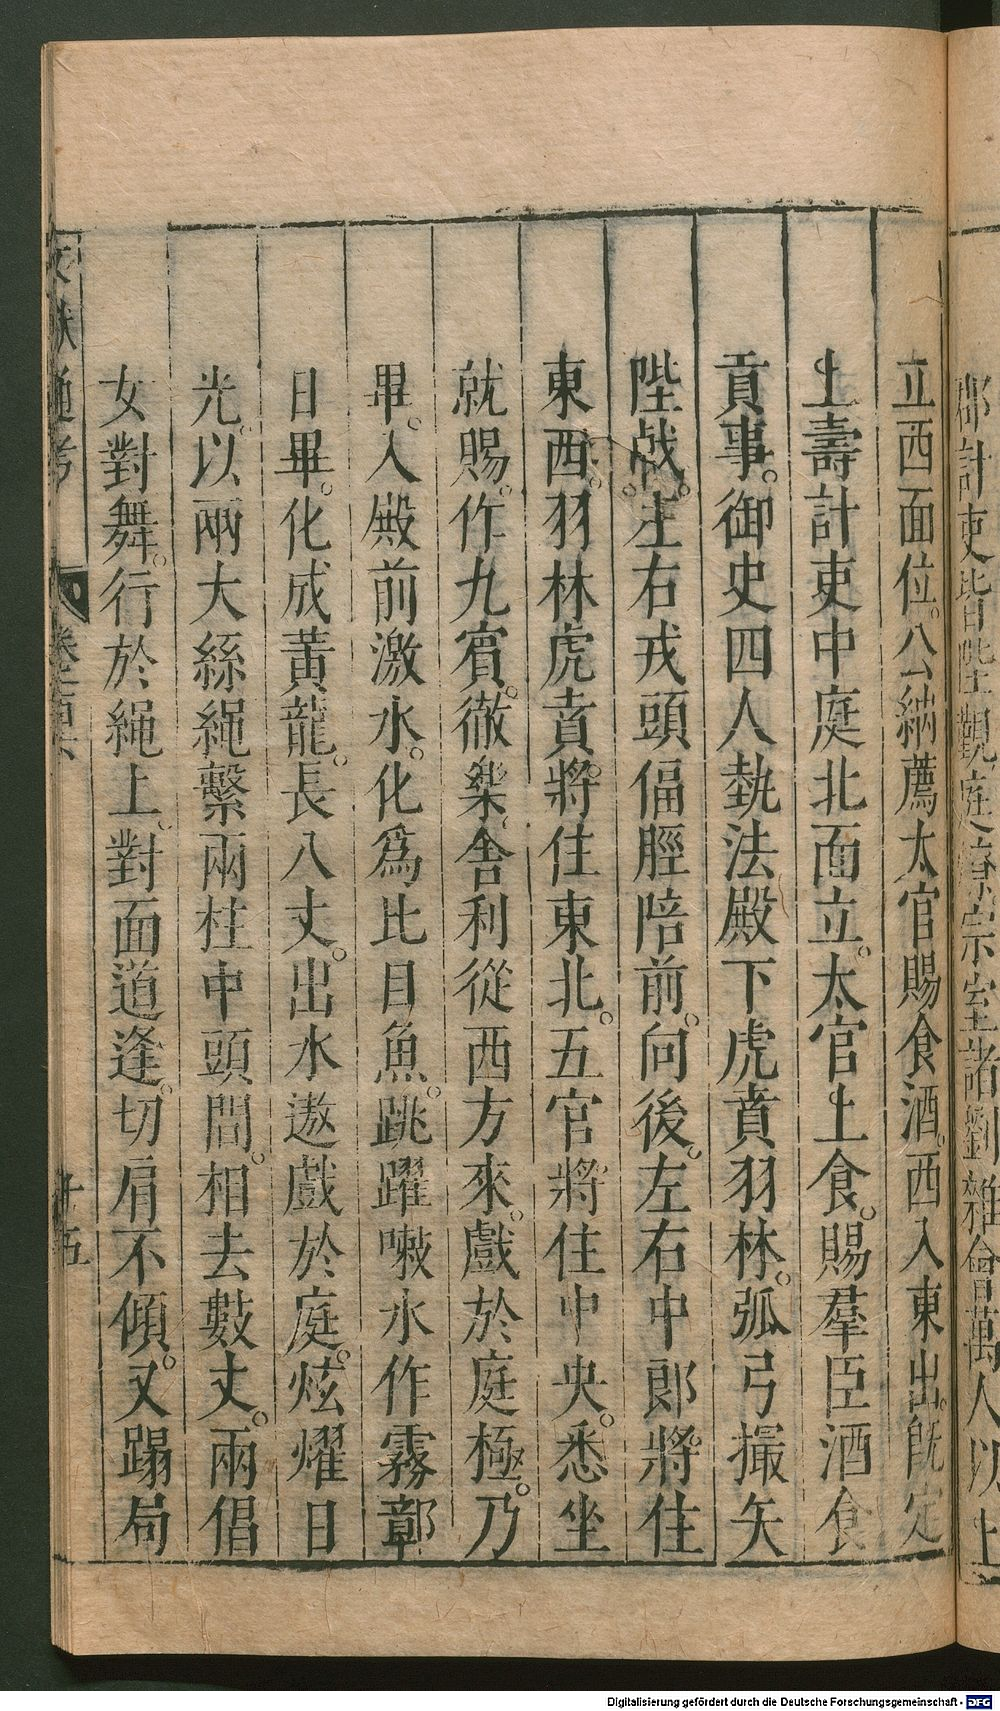 郡計吏皆陛覲庭燎宗室諸劉雜會萬人以上
立西面位。公納薦太官賜食酒。西入東出。旣定
上壽計吏中庭北面立。太官上食。賜羣臣酒食
貢事。御史四人執法殿下虎賁羽林。弧弓撮矢
陛戟。左右戎頭偪脛陪前。向後。左右中郎將住
東西。羽林虎賁。將住東北。五官將住中央。悉坐
就賜。作九賓。徹樂。舍利從西方來。戲於庭極。乃
畢。入殿前激水。化爲比目魚。跳躍嗽水作霧鄣
日畢。化成黃龍。長八丈。出水遨戲於庭。炫燿日
光。以兩大絲繩繫兩柱中頭間。相去數丈。兩倡
女對舞。行於繩上。對面道逢。切肩不傾。又蹋局
文獻通考
廿五
Digitalisierung gefördert durch die Deutsche Forschungsgemeinschaft - DFG